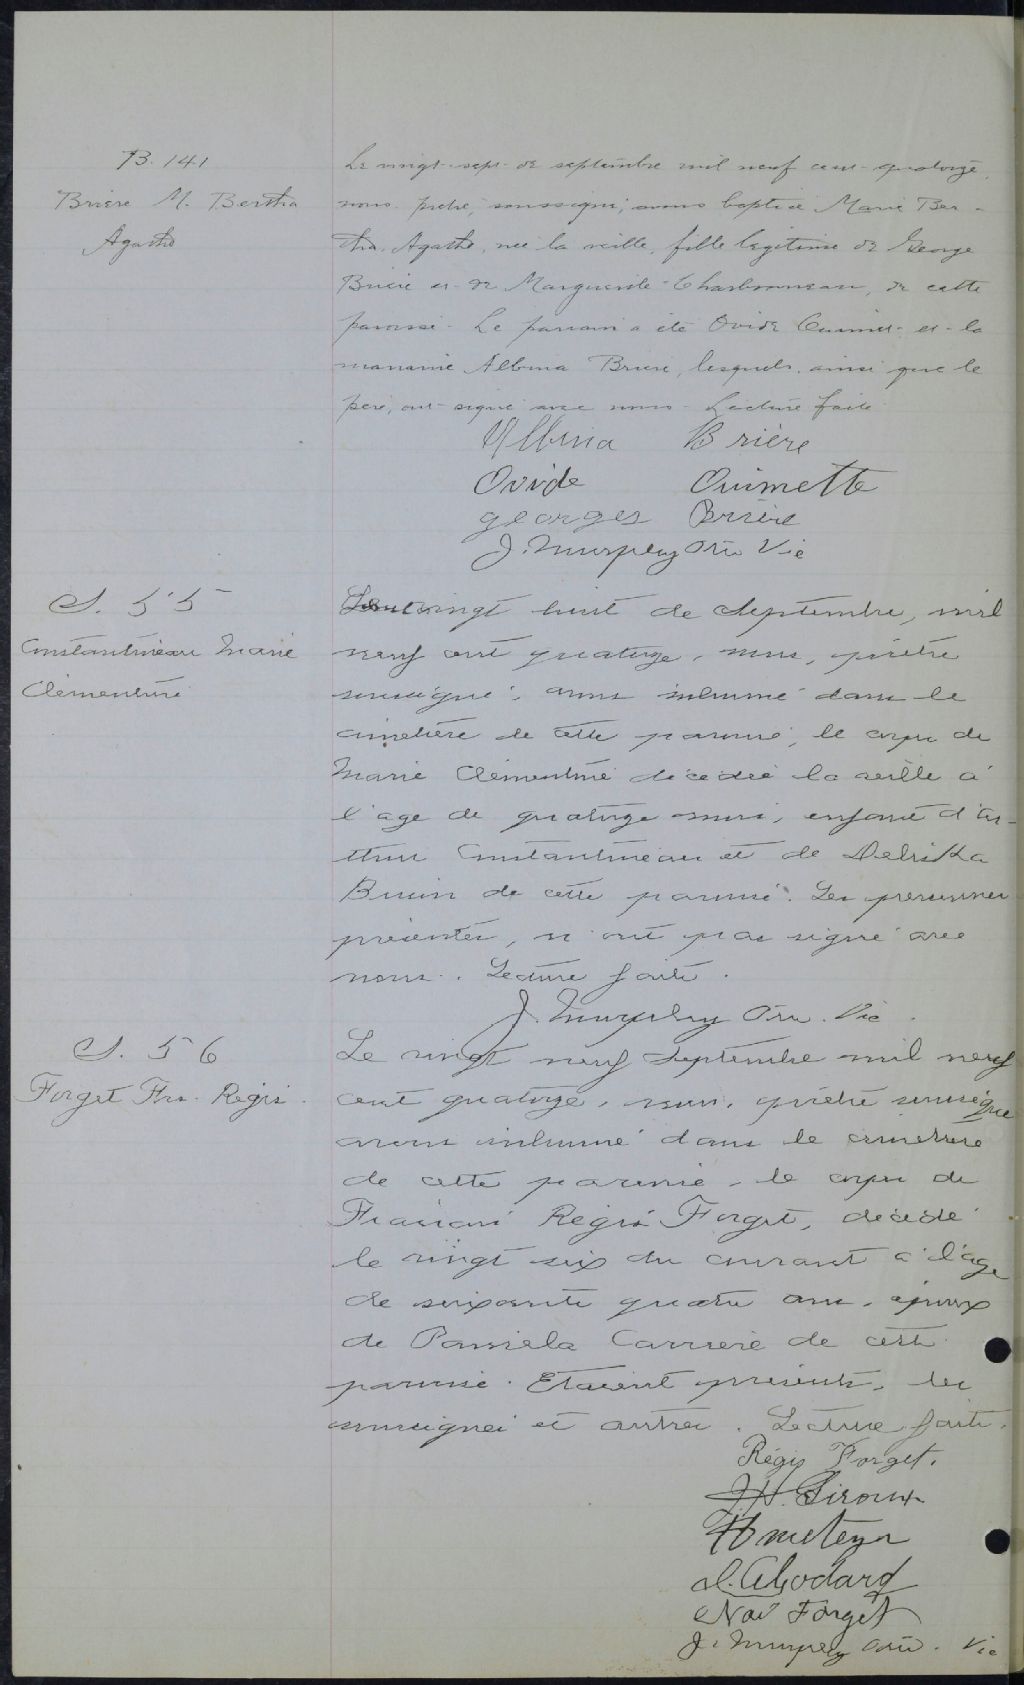 B. 141
Brière M. Bertha
Agatha
Le vingt-sept de septembre mil neuf cent quatorze,
nous prêtre, soussigné, avons baptisé Marie Ber-
tha Agathe, née la veille, fille légitime de George
Brière et de Marguerite Charbonneau, de cette
paroisse. Le parrain a été Ovide Ouimet et la
marraine Albina Brière, lesquels, ainsi que le
père, ont signé avec nous. Lecture faite.
Albina Brière
Ovide Ouimette
georges Brière
J. Murphy Ptre Vic
S. 55
Constantineau Marie
Clémentine
Le vingt huit de Septembre, mil
neuf cent quatorze, nous, prêtre
soussigné, avons inhumé dans le
cimetière de cette paroisse, le corps de
Marie Clémentine décédée la veille à
l'age de quatorze mois, enfant d'Ar-
thur Constantineau et de
de cette paroisse. Les personnes
présentes, n'ont pas signé avec
nous. Lecture faite.
J. Murphy Ptre. Vic.
S. 56
Forget Frs. Régis.
Le vingt neuf Septembre mil neuf
cent quatorze, nous, prêtre soussigné
avons inhumé dans le cimetière
de cette paroisse, le corps de
François Régis Forget, décédé
le vingt six du courant à l'age
de soixante quatre ans, époux
de Paméla Carrière de cette
paroisse. Etaient présents, les
soussignés et autres. Lecture faite.
Régis Forget.
Giroux
Forget
J. Murphy Ptre. Vic